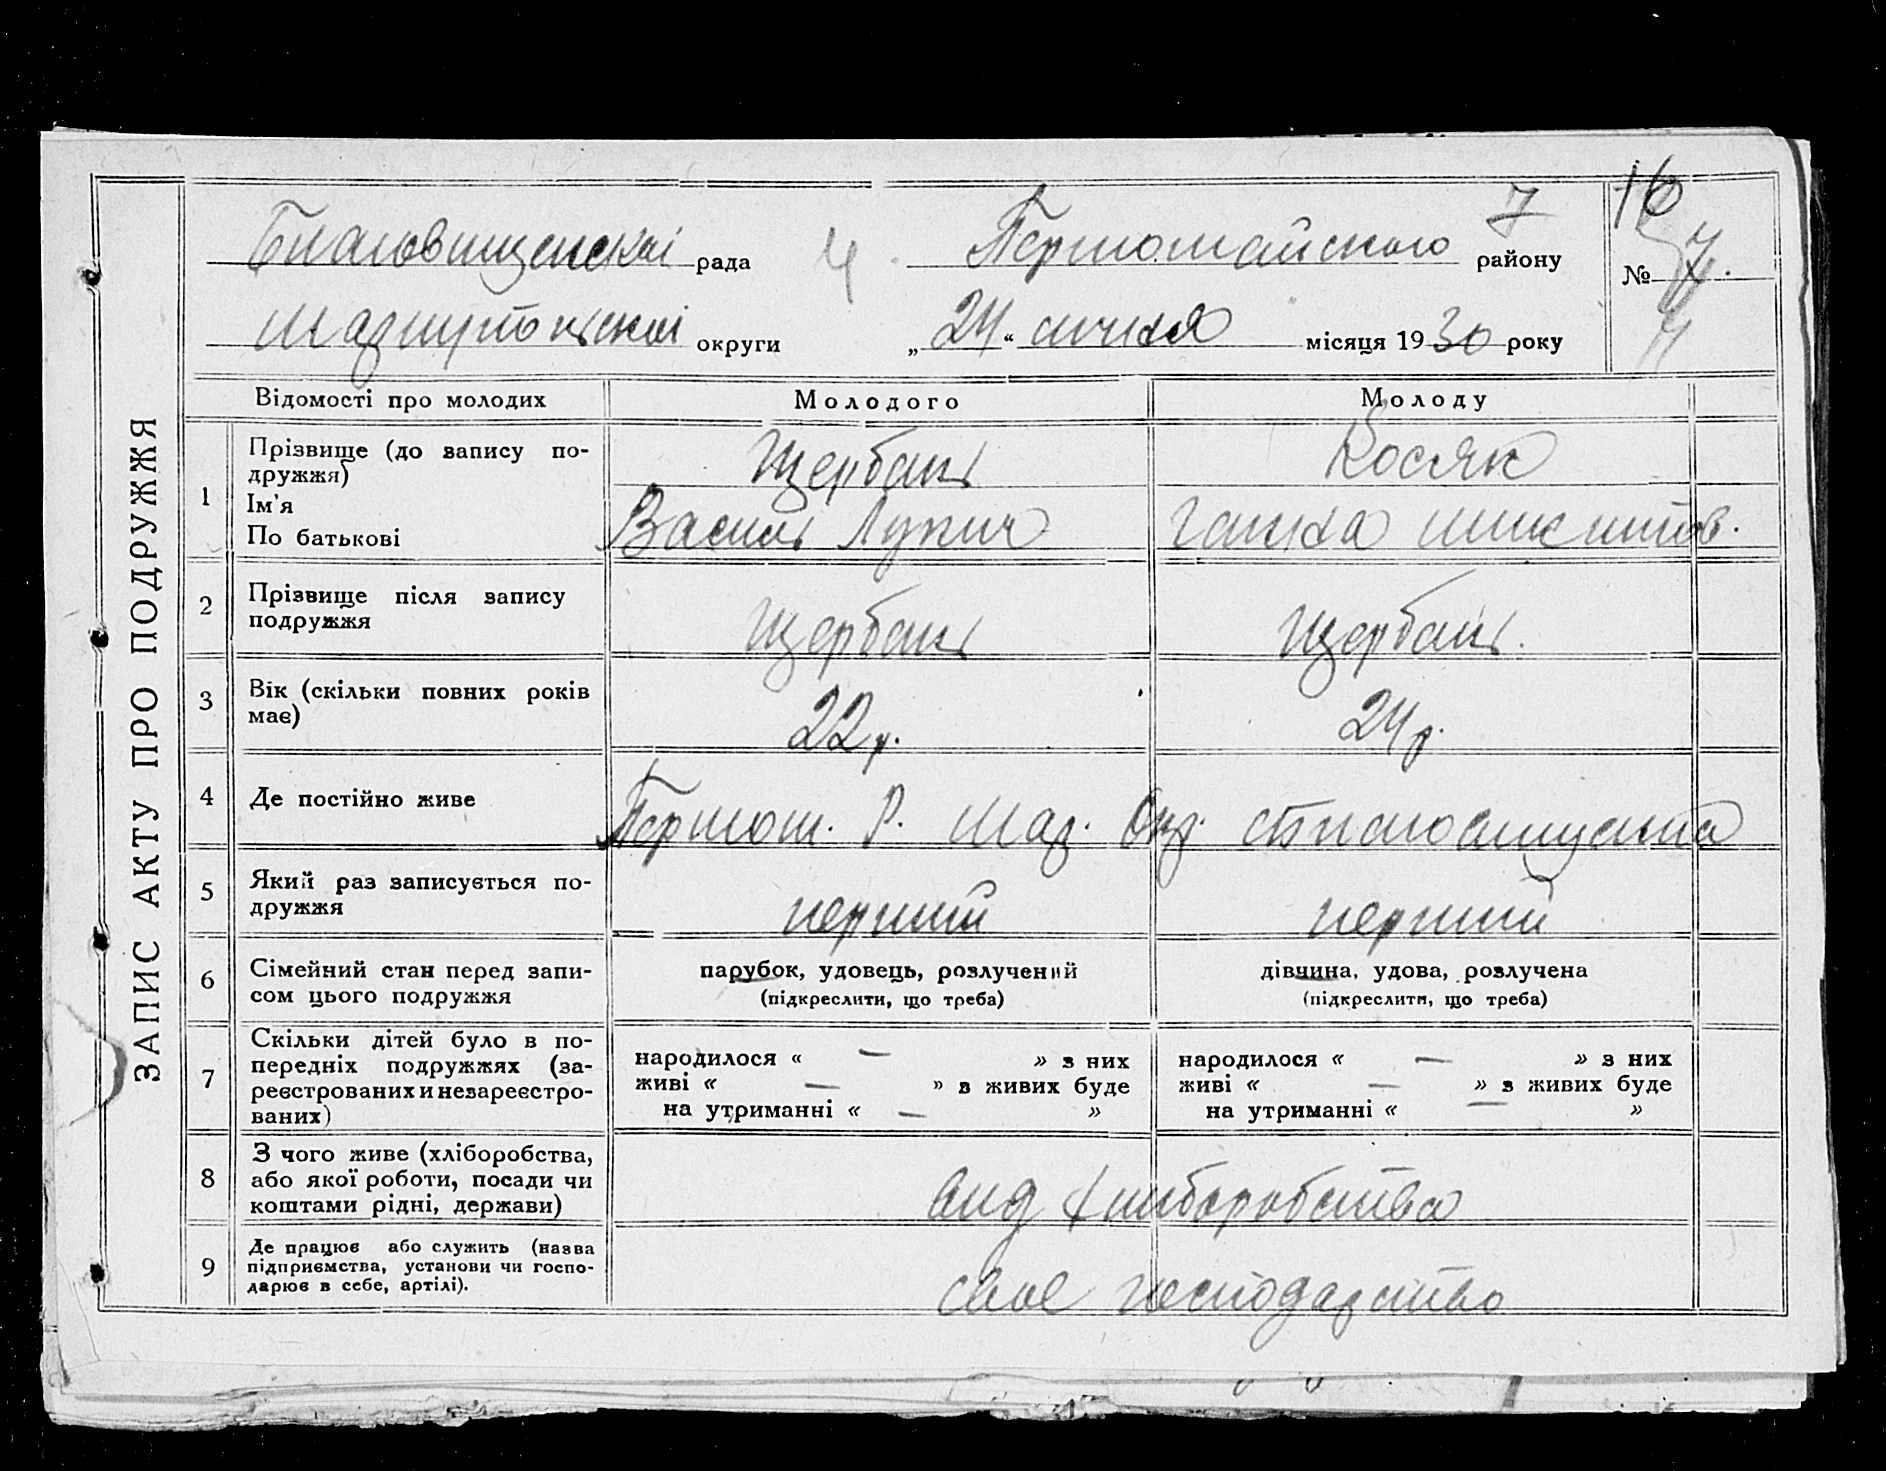 ЗАПИС АКТУ ПРО ПОДРУЖЖЯ
16
Благовищенскої рада Ч. Першомайського 7 району
№ 7.
Мариупольскої округи „24“ січня місяця 1930 року
Відомості про молодих Молодого Молоду
1 Прізвище (до запису по-
дружжя) Щербань Косяк
Ім'я
По батькові Василь Лукич Ганна Микитов.
2 Прізвище після запису
подружжя Щербань Щербань.
3 Вік (скільки повних років
має) 22 р. 24 р.
4 Де постійно живе Першом. Р. Мар. Окр. с Благовищенка
5 Який раз записується по-
дружжя перший перший
6 Сімейний стан перед запи-
сом цього подружжя
парубок, удовець, розлучений дівчина, удова, розлучена
(підкреслити, що треба) (підкреслити, що треба)
7 Скільки дітей було в по-
передніх подружжях (за-
реєстрованих и незареєстро-
ваних)
народилося « — » з них народилося « — » з них
живі « — » з живих буде живі « — » з живих буде
на утриманні « — » на утриманні « — »
8 З чого живе (хліборобства,
або якої роботи, посади чи
коштами рідні, держави) вид хлиборобства
9 Де працює або служить (назва
підприємства, установи чи госпо-
дарює в себе, артілі). своє господарство